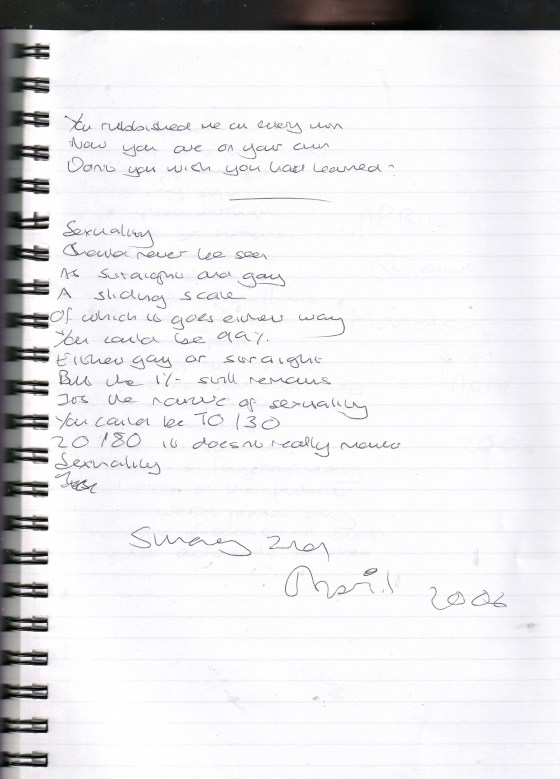 You rubbished me on every turn
Now you are on your own
Don't you wish you had learned -
Sexuality
Should never be seen
As straight and gay
A sliding scale
Of which it goes either way
You could be 99%
Either gay or straight
But the 1% still remains
Its the nature of sexuality
You could be 70/30
20/80 it doesn't really matter
Sexuality
Sunday 2nd
April 2006